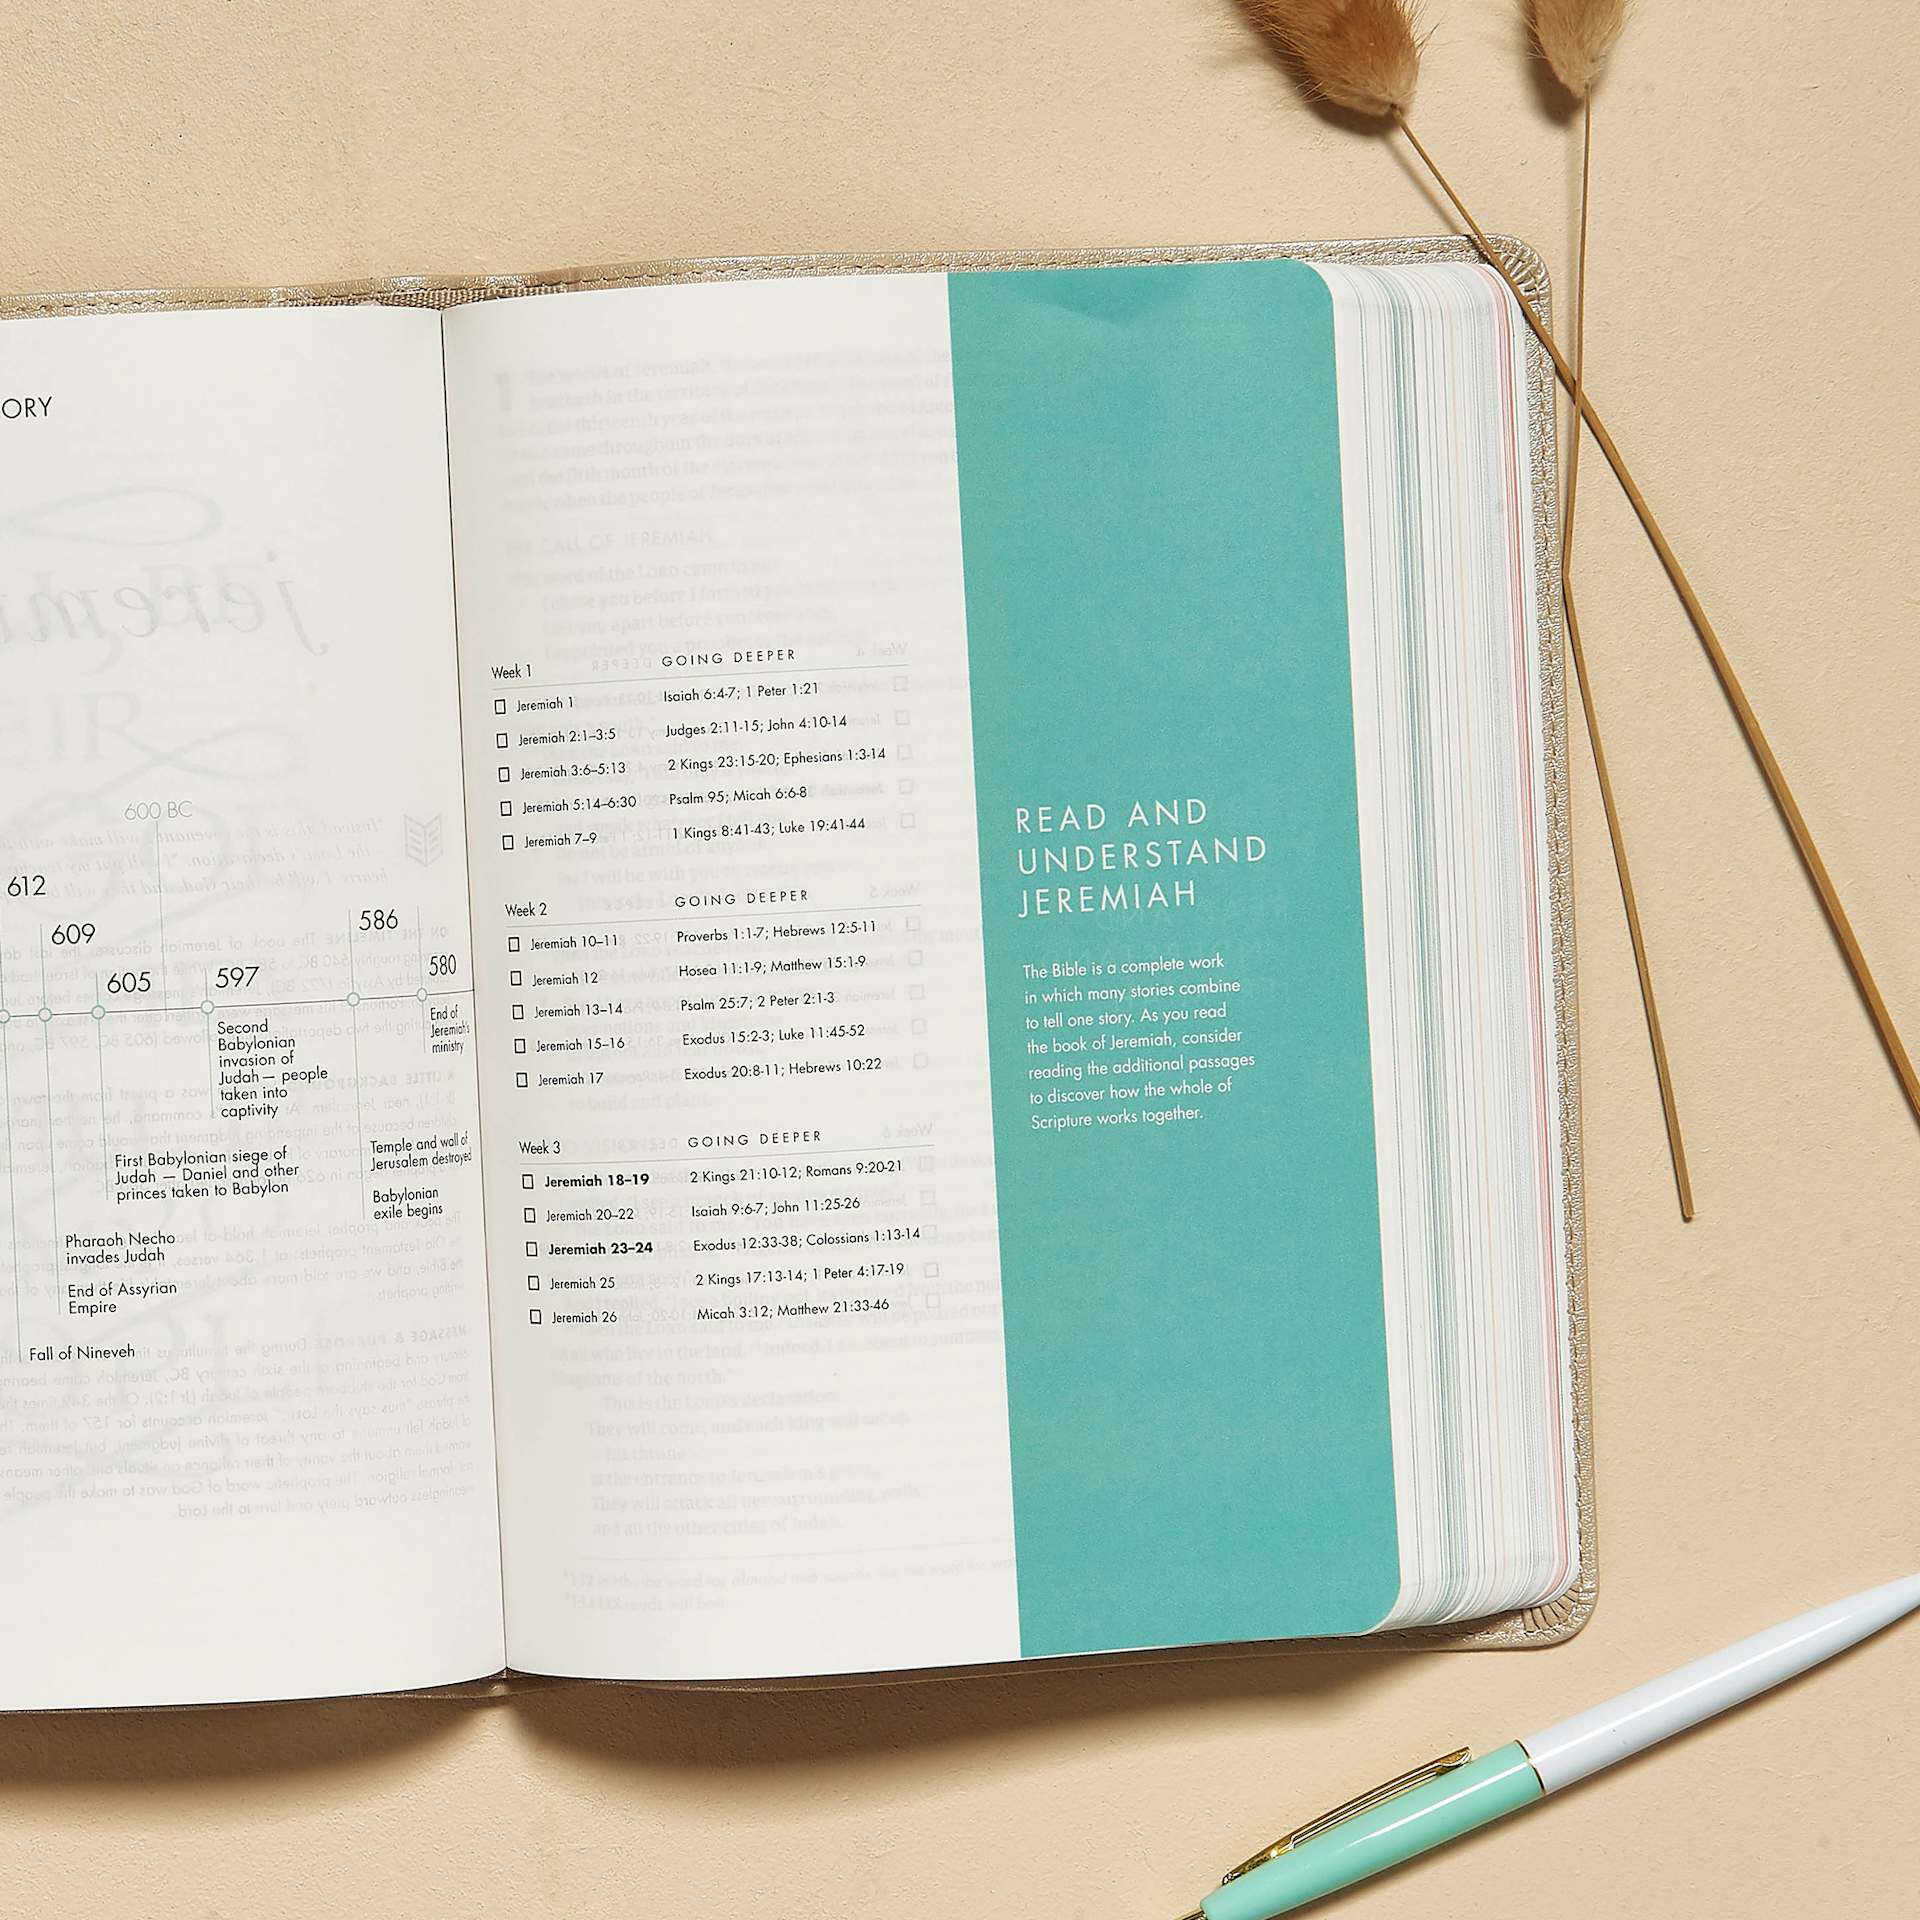 ORY
600 BC
612
609
605
597
586
580
Second
Babylonian
invasion of
Judah — people
taken into
captivity
End of
Jeremiah's
ministry
First Babylonian siege of
Judah — Daniel and other
princes taken to Babylon
Temple and wall of
Jerusalem destroyed
Babylonian
exile begins
Pharaoh Necho
invades Judah
End of Assyrian
Empire
Fall of Nineveh
Week 1 GOING DEEPER
Jeremiah 1 Isaiah 6:4-7; 1 Peter 1:21
Jeremiah 2:1–3:5 Judges 2:11-15; John 4:10-14
Jeremiah 3:6–5:13 2 Kings 23:15-20; Ephesians 1:3-14
Jeremiah 5:14–6:30 Psalm 95; Micah 6:6-8
Jeremiah 7–9 1 Kings 8:41-43; Luke 19:41-44
Week 2 GOING DEEPER
Jeremiah 10–11 Proverbs 1:1-7; Hebrews 12:5-11
Jeremiah 12 Hosea 11:1-9; Matthew 15:1-9
Jeremiah 13–14 Psalm 25:7; 2 Peter 2:1-3
Jeremiah 15–16 Exodus 15:2-3; Luke 11:45-52
Jeremiah 17 Exodus 20:8-11; Hebrews 10:22
Week 3 GOING DEEPER
Jeremiah 18–19 2 Kings 21:10-12; Romans 9:20-21
Jeremiah 20–22 Isaiah 9:6-7; John 11:25-26
Jeremiah 23–24 Exodus 12:33-38; Colossians 1:13-14
Jeremiah 25 2 Kings 17:13-14; 1 Peter 4:17-19
Jeremiah 26 Micah 3:12; Matthew 21:33-46
READ AND
UNDERSTAND
JEREMIAH
The Bible is a complete work
in which many stories combine
to tell one story. As you read
the book of Jeremiah, consider
reading the additional passages
to discover how the whole of
Scripture works together.